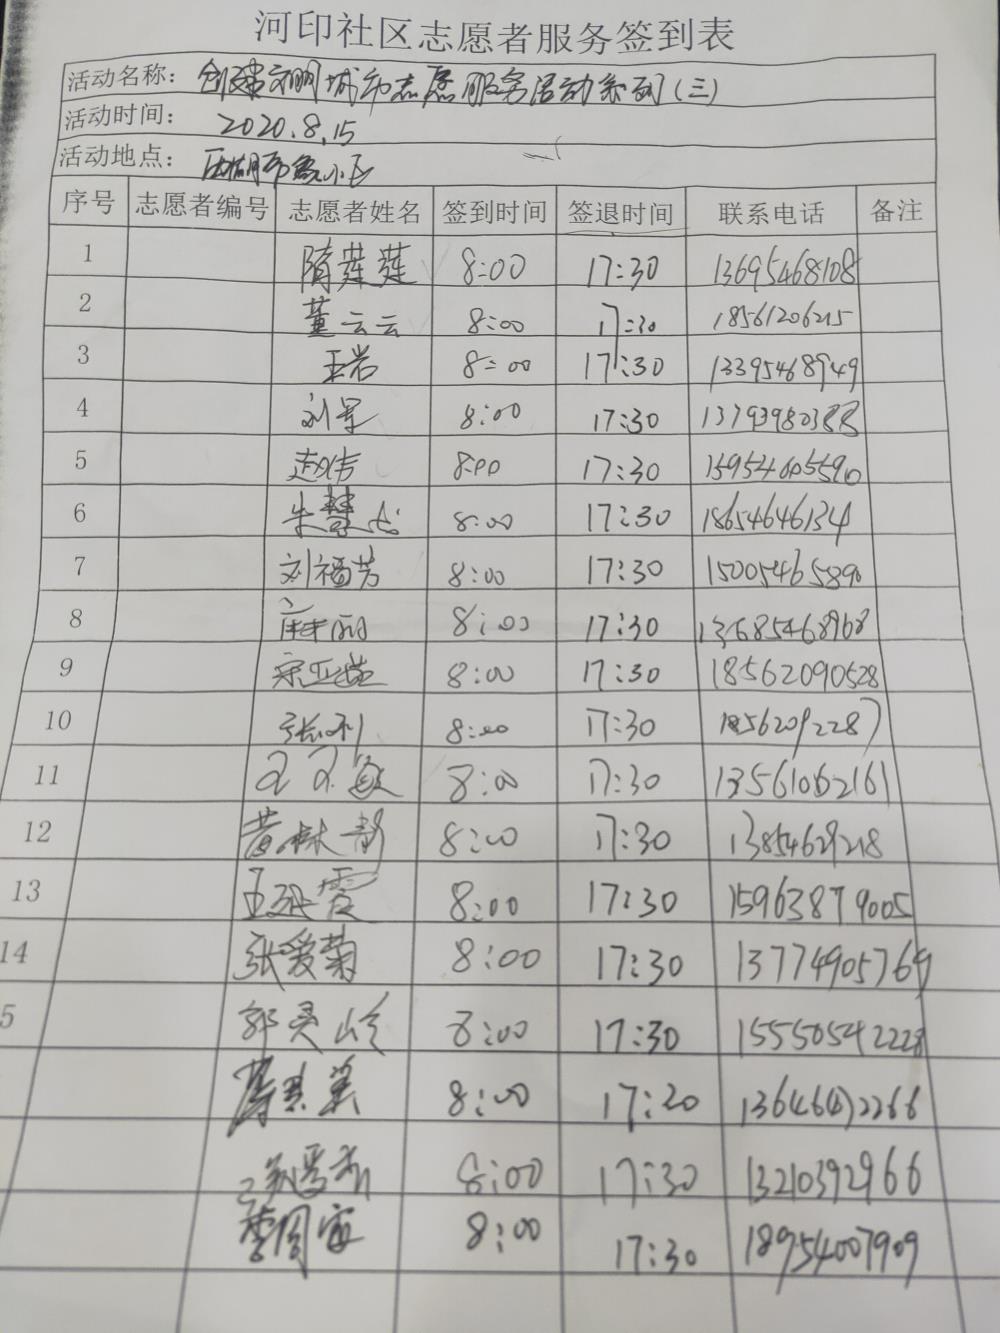 河印社区志愿者服务签到表
活动名称: 创建文明城市志愿服务活动系列(三)
活动时间: 2020.8.15
活动地点: 小区
序号 志愿者编号 志愿者姓名 签到时间 签退时间 联系电话 备注
1 隋莲莲 8:00 17:30 13695468108
2 董云云 8:00 17:30 18561206215
3 王岩 8:00 17:30 13395468949
4 刘军 8:00 17:30 13793980388
5 赵伟 8:00 17:30 15954605590
6 朱慧 8:00 17:30 18654646134
7 刘福芳 8:00 17:30 15005465890
8 8:00 17:30 13685468968
9 宋亚茹 8:00 17:30 18562090528
10 张利 8:00 17:30 18562092287
11 8:00 17:30 13561062161
12 黄林静 8:00 17:30 13854629218
13 王延霞 8:00 17:30 15963879005
14 张爱菊 8:00 17:30 13774905769
5 郭灵山 8:00 17:30 15550542228
8:00 17:20
8:00 17:30 13210392966
李国富 8:00 17:30 18954007909